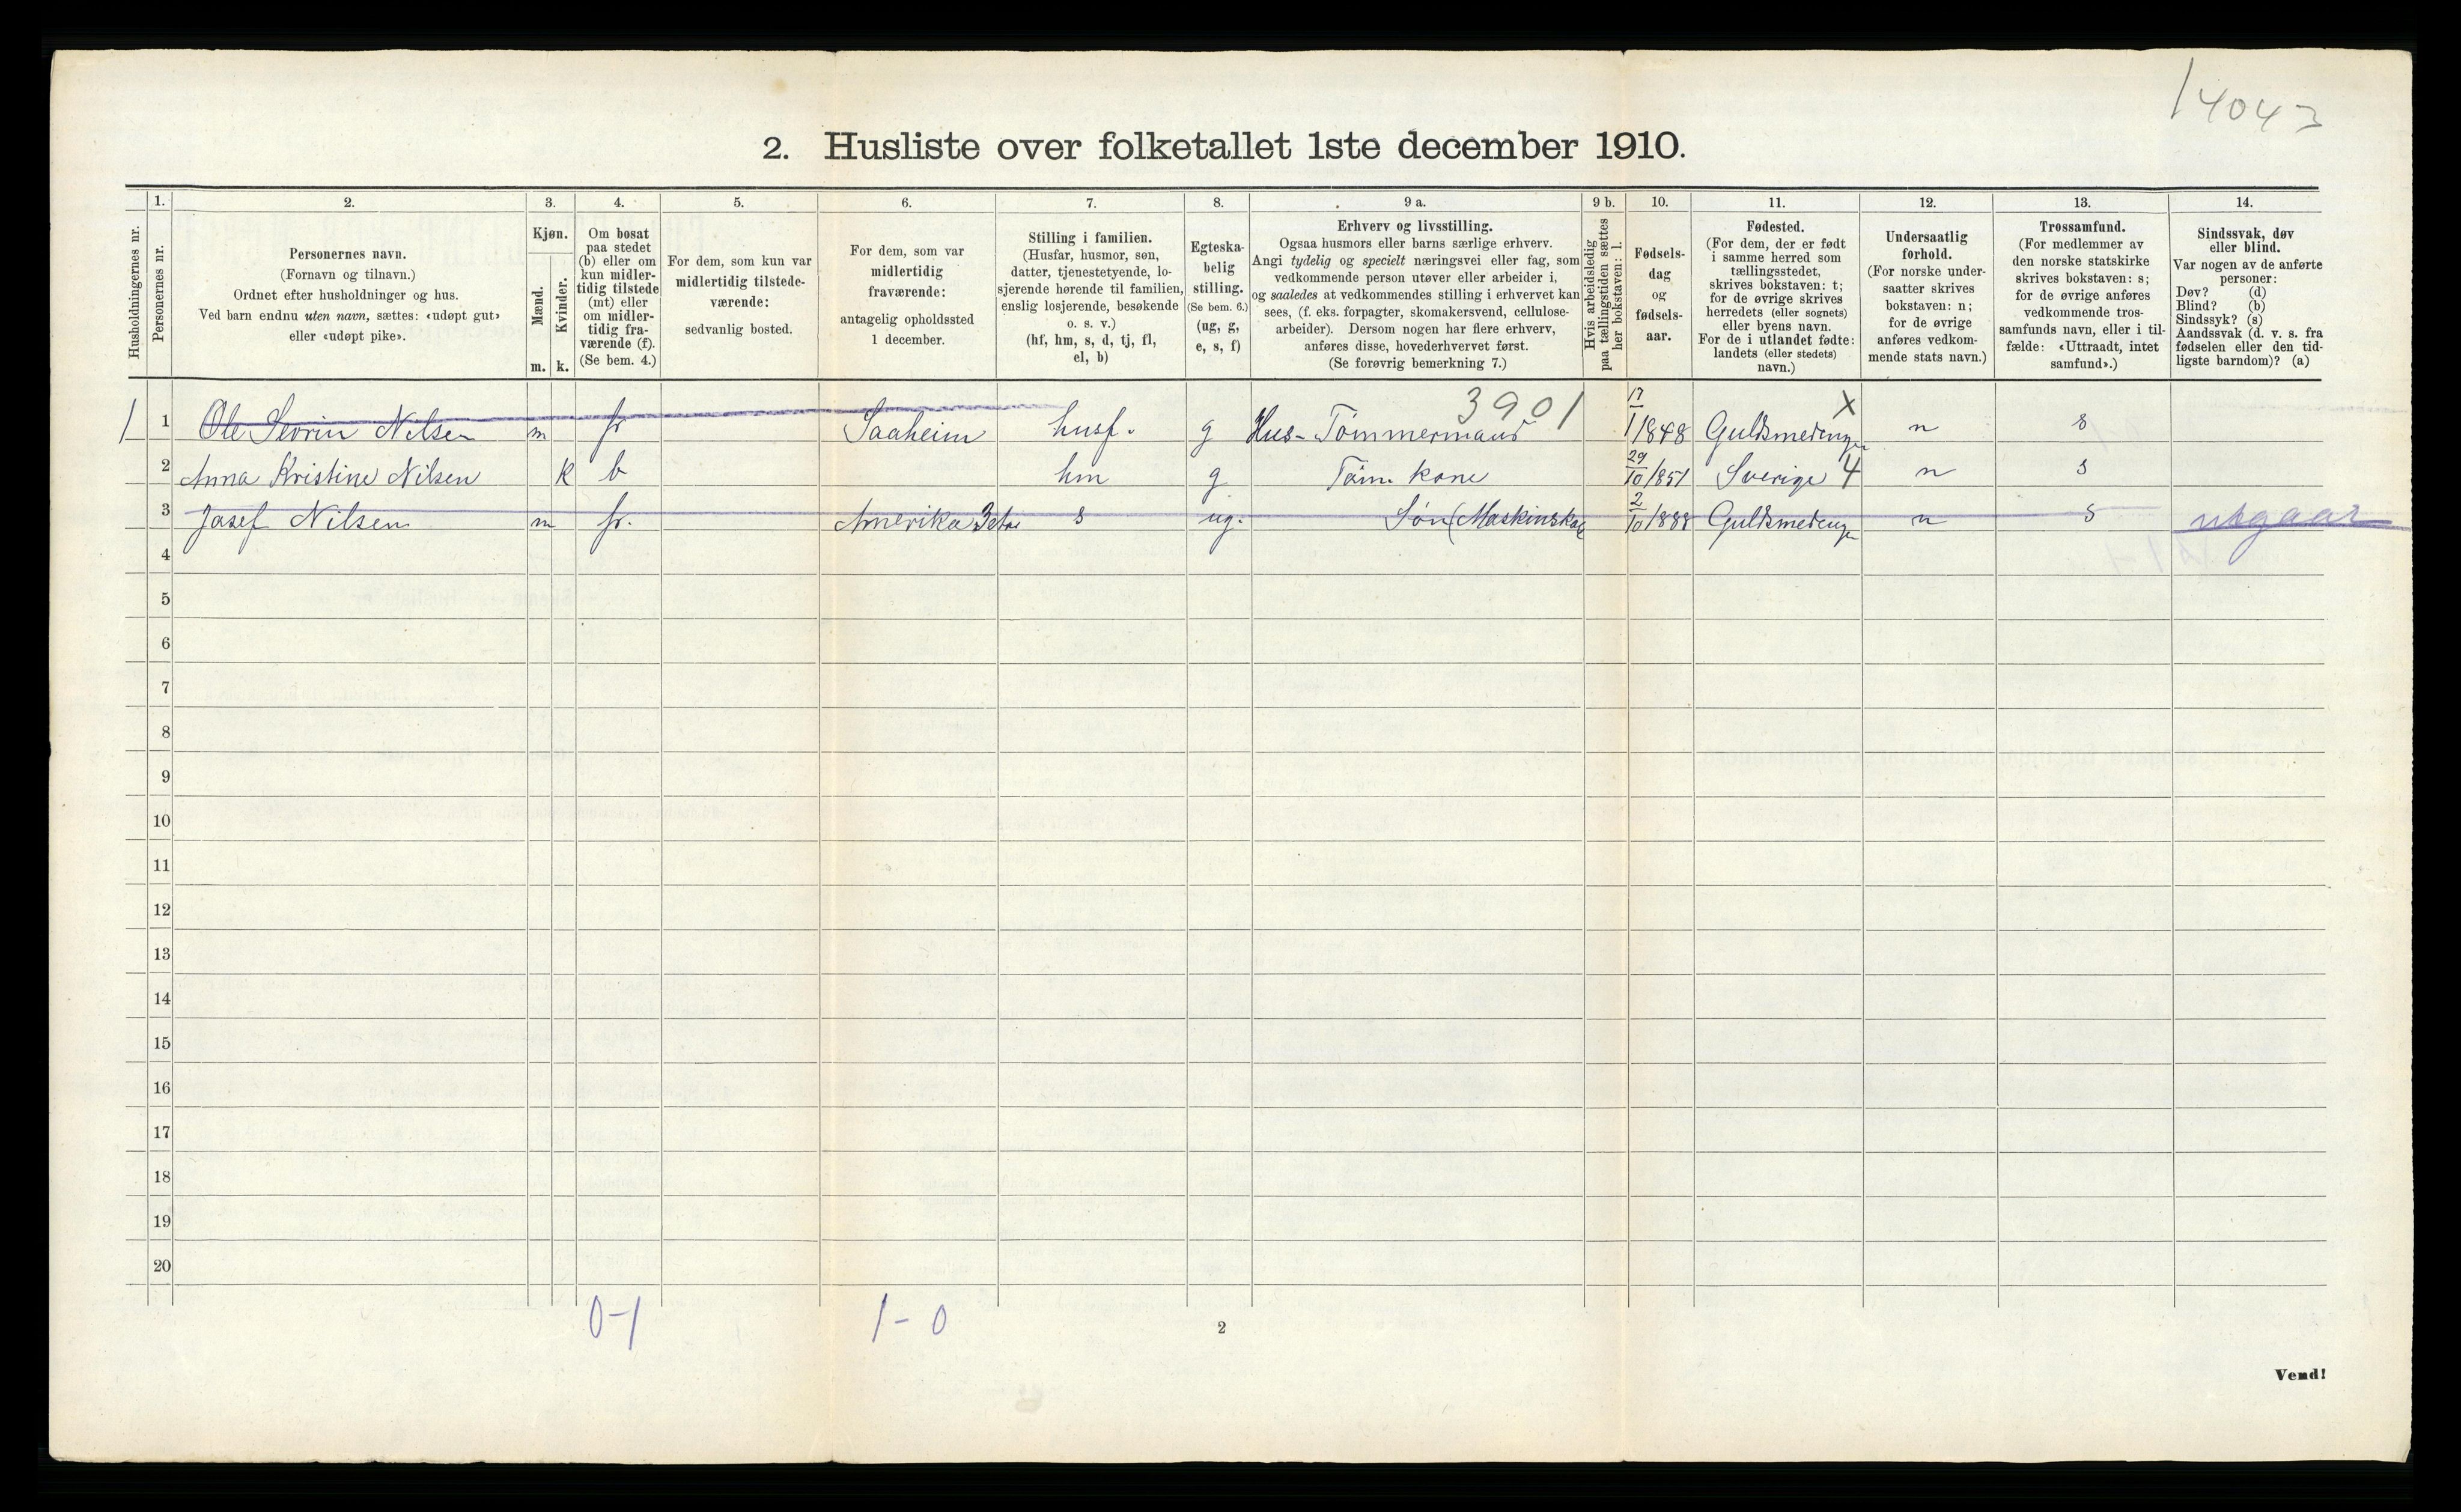 14043
2. Husliste over folketallet 1ste december 1910.
Husholdningernes nr.
1. Personernes nr.
2. Personernes navn.
(Fornavn og tilnavn.)
Ordnet efter husholdninger og hus.
Ved barn endnu uten navn, sættes: «udøpt gut»
eller «udøpt pike».
3. Kjøn.
Mænd. Kvinder.
m. k.
4. Om bosat
paa stedet
(b) eller om
kun midler-
tidig tilstede
(mt) eller
om midler-
tidig fra-
værende (f).
(Se bem. 4.)
5. For dem, som kun var
midlertidig tilstede-
værende:
sedvanlig bosted.
6. For dem, som var
midlertidig
fraværende:
antagelig opholdssted
1 december.
7. Stilling i familien.
(Husfar, husmor, søn,
datter, tjenestetyende, lo-
sjerende hørende til familien,
enslig losjerende, besøkende
o. s. v.)
(hf, hm, s, d, tj, fl,
el, b)
8. Egteska-
belig
stilling.
(Se bem. 6.)
(ug, g,
e, s, f)
9 a. Erhverv og livsstilling.
Ogsaa husmors eller barns særlige erhverv.
Angi tydelig og specielt næringsvei eller fag, som
vedkommende person utøver eller arbeider i,
og saaledes at vedkommendes stilling i erhvervet kan
sees, (f. eks. forpagter, skomakersvend, cellulose-
arbeider). Dersom nogen har flere erhverv,
anføres disse, hovederhvervet først.
(Se forøvrig bemerkning 7.)
9 b. Hvis arbeidsledig
paa tællingstiden sættes
her bokstaven: l.
10. Fødsels-
dag
og
fødsels-
aar.
11. Fødested.
(For dem, der er født
i samme herred som
tællingsstedet,
skrives bokstaven: t;
for de øvrige skrives
herredets (eller sognets)
eller byens navn.
For de i utlandet fødte:
landets (eller stedets)
navn.)
12. Undersaatlig
forhold.
(For norske under-
saatter skrives
bokstaven: n;
for de øvrige
anføres vedkom-
mende stats navn.)
13. Trossamfund.
(For medlemmer av
den norske statskirke
skrives bokstaven: s;
for de øvrige anføres
vedkommende tros-
samfunds navn, eller i til-
fælde: «Uttraadt, intet
samfund».)
14. Sindssvak, døv
eller blind.
Var nogen av de anførte
personer:
Døv? (d)
Blind? (b)
Sindssyk? (s)
Aandssvak (d. v. s. fra
fødselen eller den tid-
ligste barndom)? (a)
3901 X
1 1 Ole Sevrin Nilsen m fr Saaheim husf. g Hus-Tömmermand 17/1 1848 Guldsmedeng n s
2 Anna Kristine Nilsen k b hm g Töm. kone 29/10 1851 Sverige 4 n s
3 Josef Nilsen m fr. Amerika s ug. Sön (Maskinskol 2/10 1888 Guldsmedeng n s utgaar
4
5
6
7
8
9
10
11
12
13
14
15
16
17
18
19
20
0-1 1-0
2
Vend!